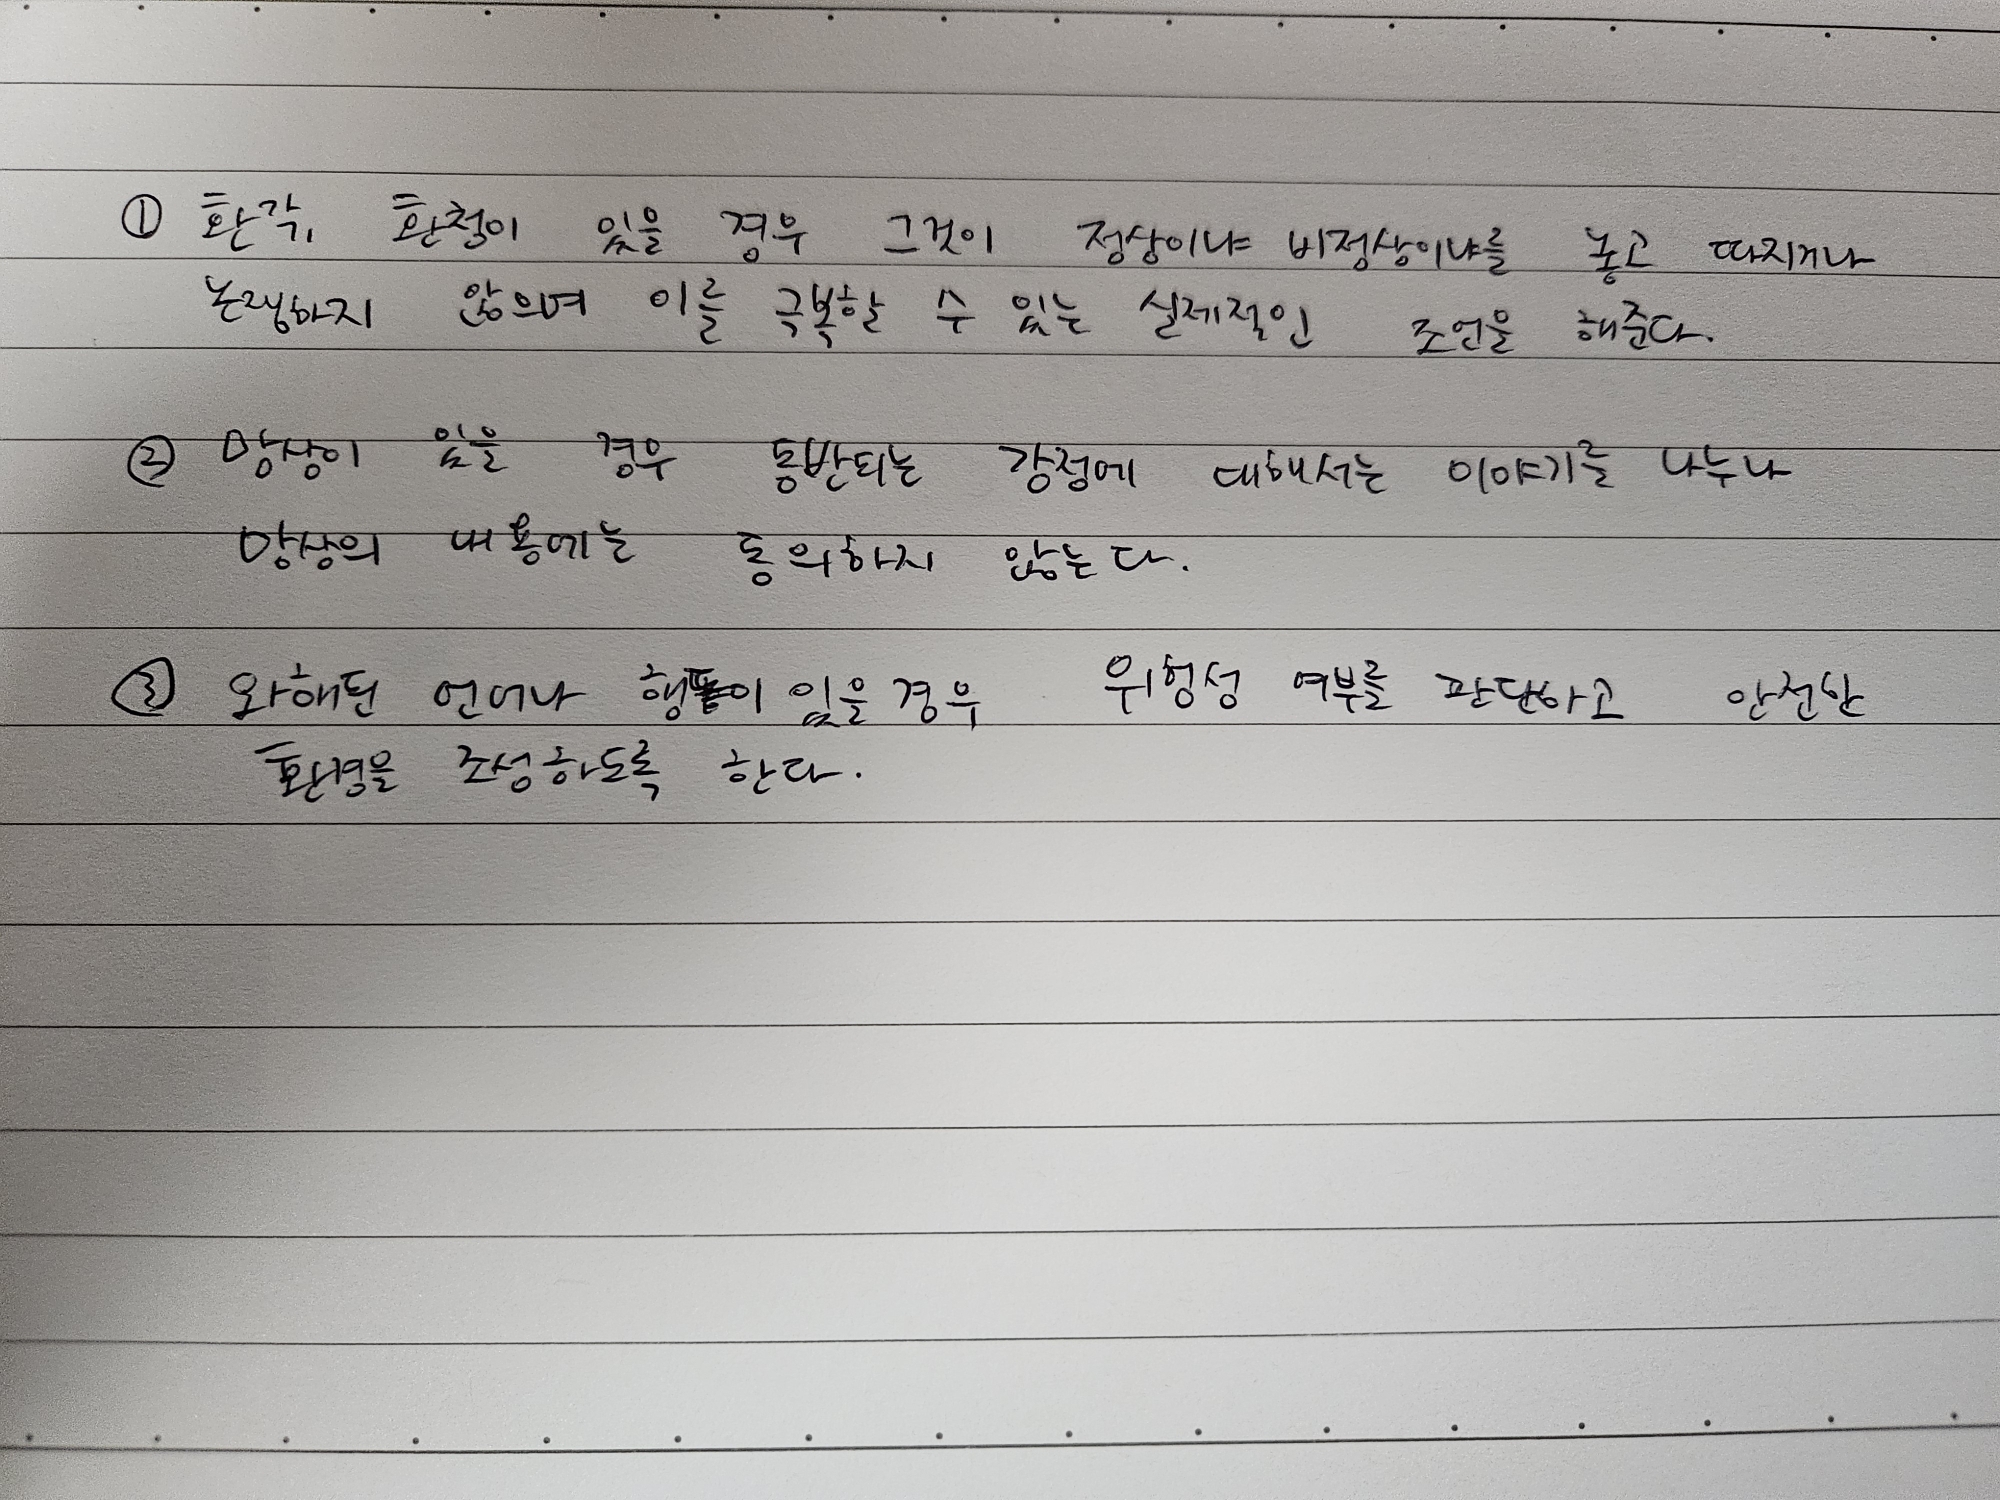 ① 환각, 환청이 있을 경우 그것이 정상이냐 비정상이냐를 놓고 따지거나
논쟁하지 않으며 이를 극복할 수 있는 실제적인 조언을 해준다.
② 망상이 있을 경우 동반되는 감정에 대해서는 이야기를 나누나
망상의 내용에는 동의하지 않는다.
③ 와해된 언어나 행동이 있을 경우 위험성 여부를 판단하고 안전한
환경을 조성하도록 한다.